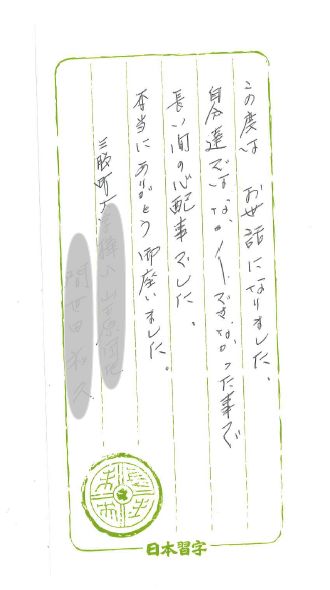 この度は お世話になりました、
自分達ではなかなかできなかった事で
長い間の心配事でした。
本当にありがとう御座いました。
三股町
日本習字